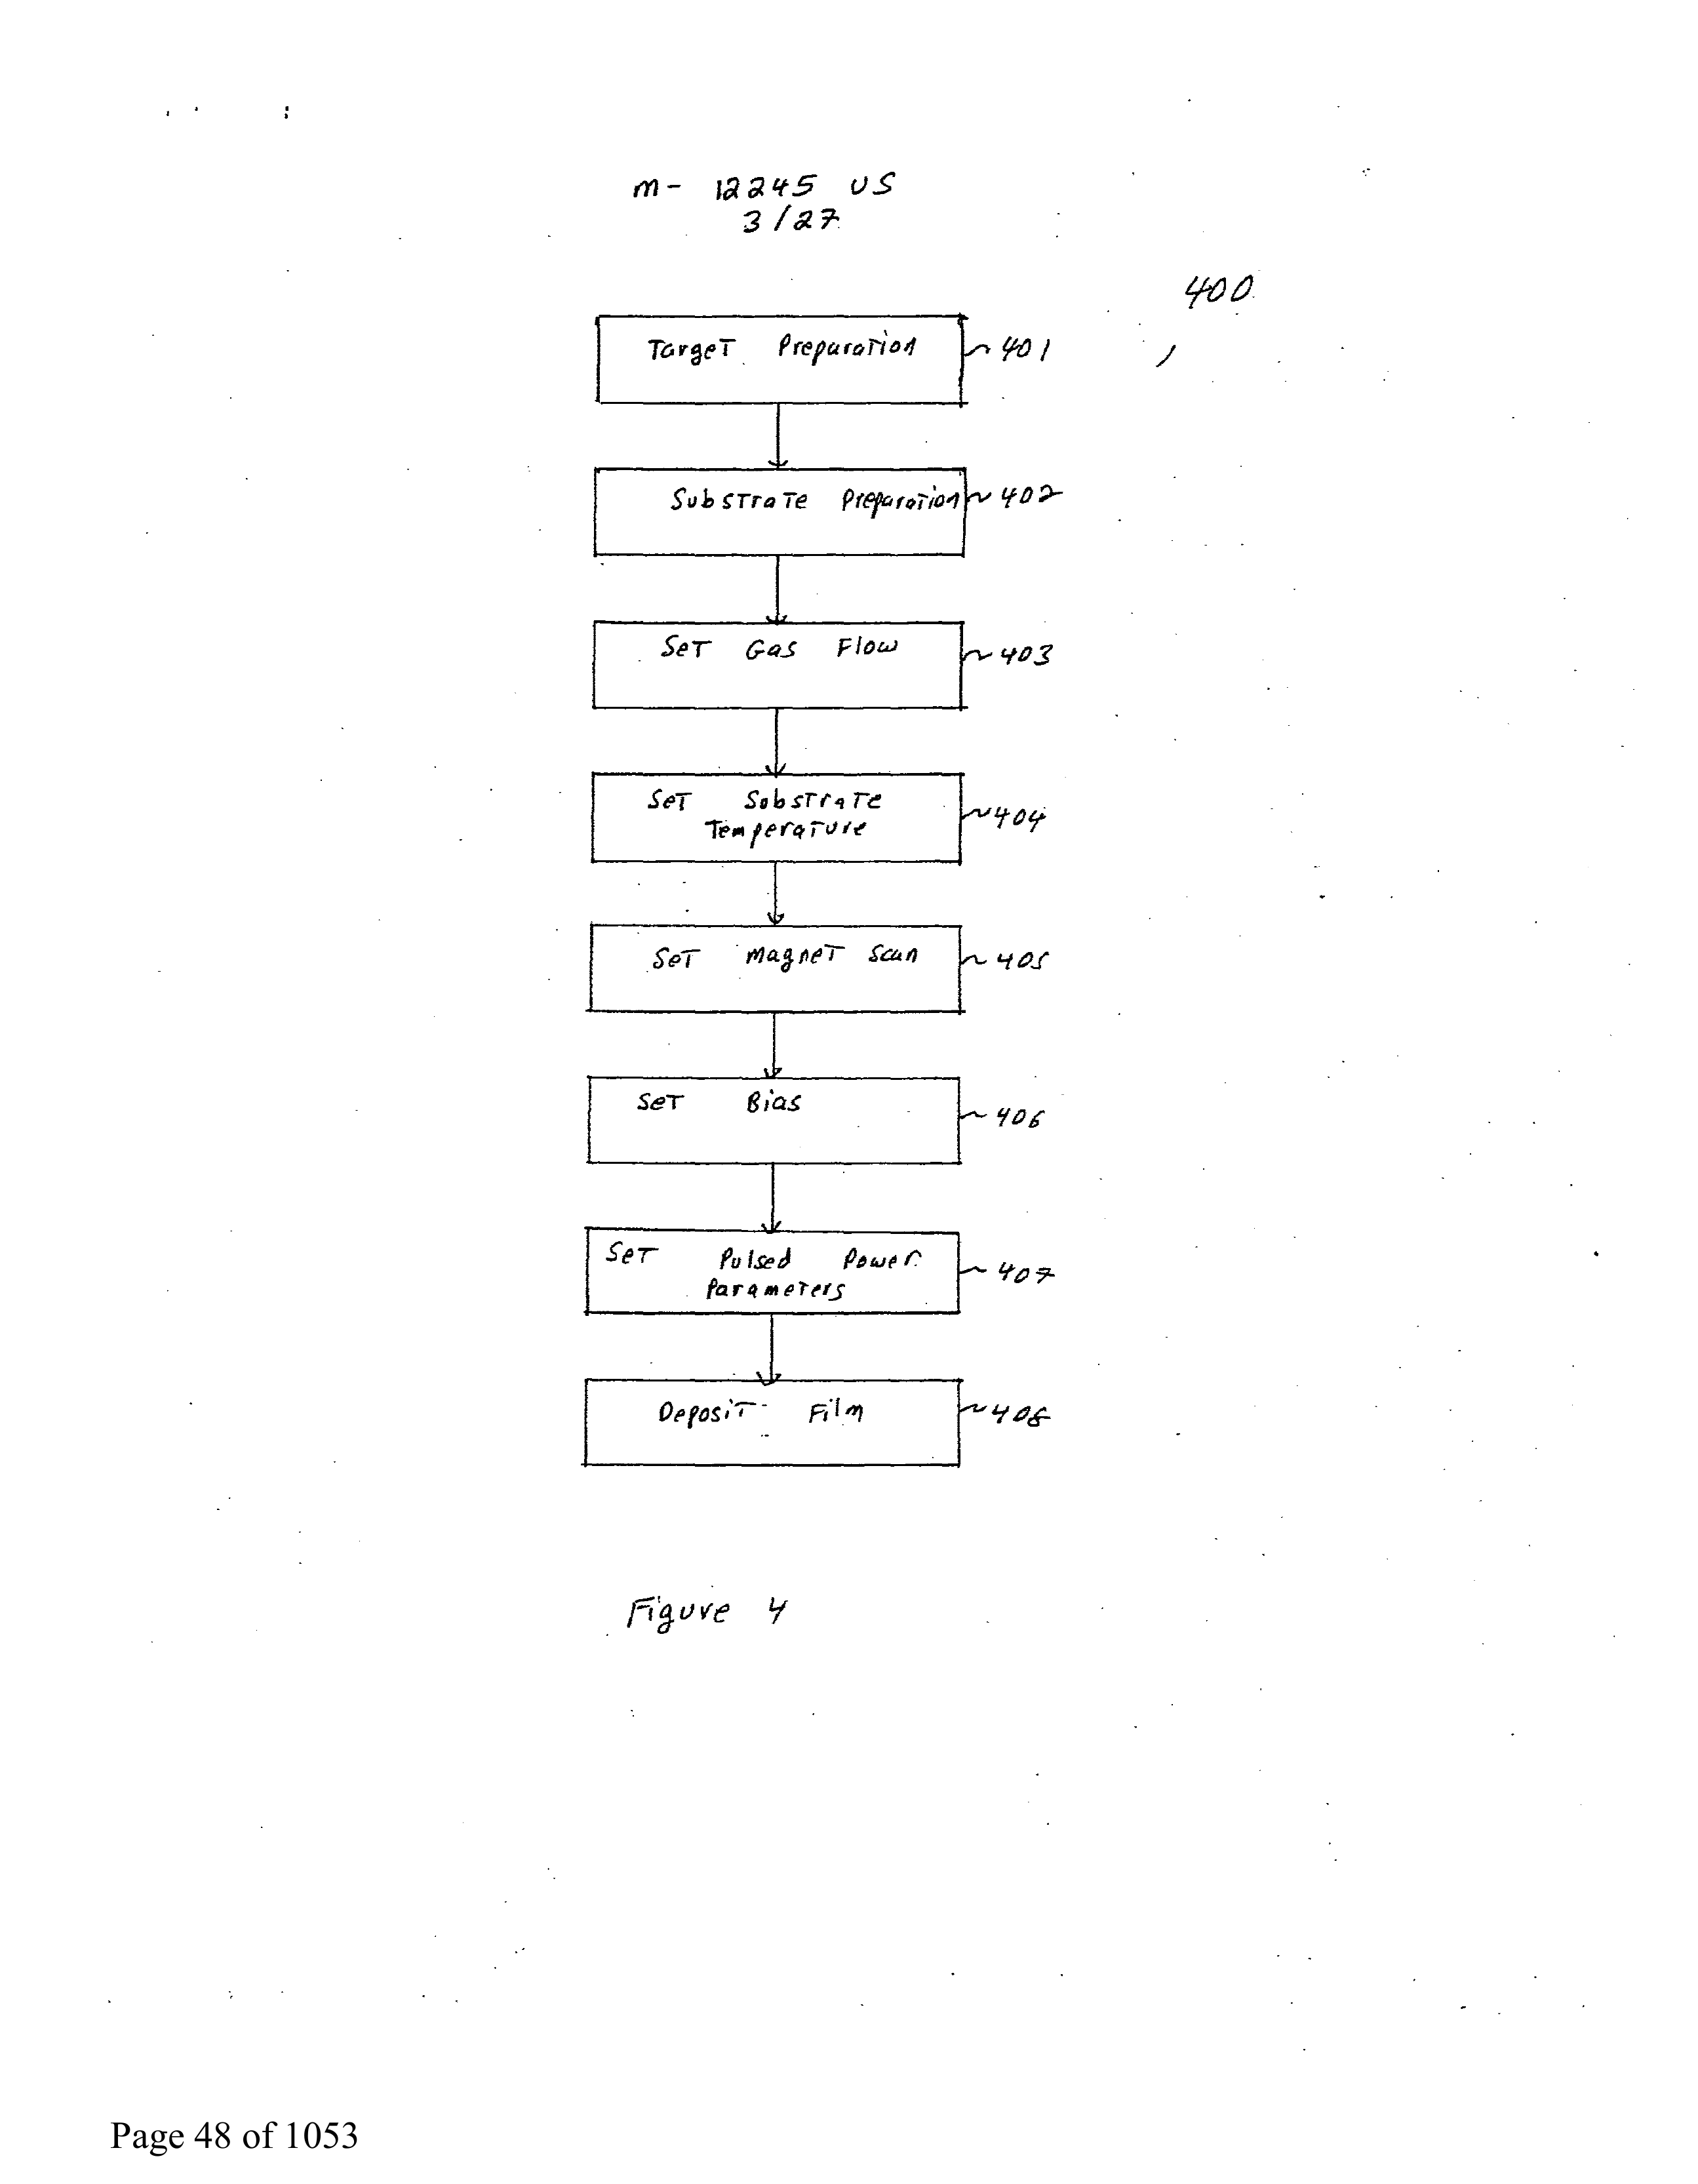 m- 12245 US
3/27
400
Target Preparation ~401
Substrate Preparation ~402
Set Gas Flow ~403
Set Substrate
Temperature ~404
Set Magnet Scan ~405
Set Bias ~406
Set Pulsed Power
Parameters ~407
Deposit Film ~408
Figure 4
Page 48 of 1053